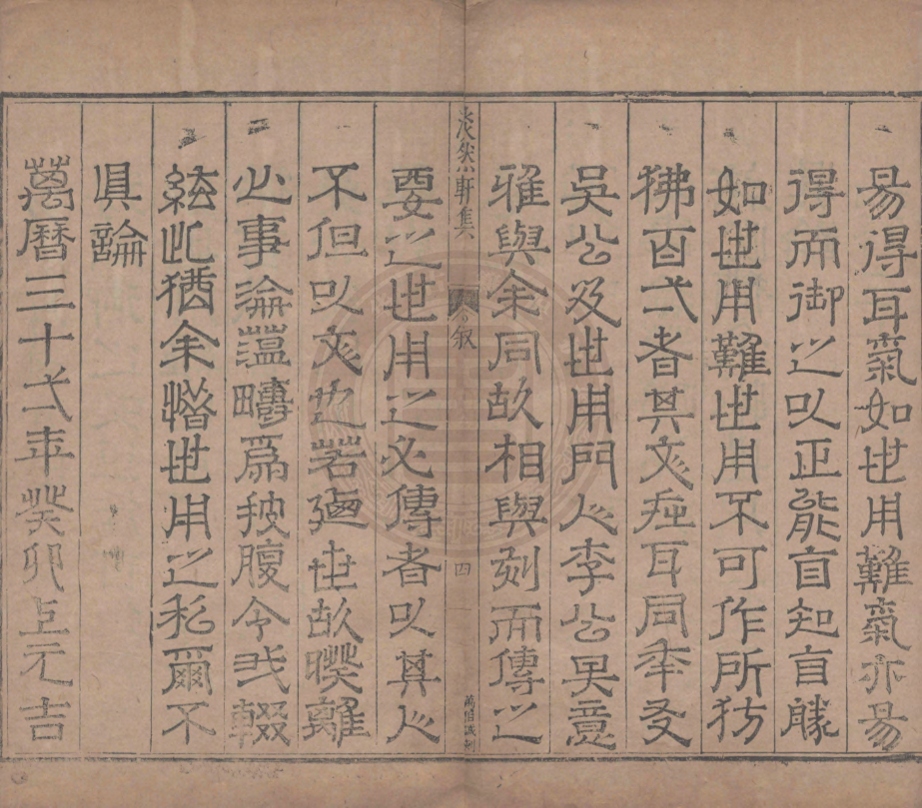 易得耳氣如世用難氣亦易
得而御之以正能盲知盲勝
如世用難世用不可作所彷
彿百弌者其文在耳同秊友
吳公及世用門人李公昊意
雅與余同故相與刻而傳之
淡然軒集 叙 四
要之世用之必傳者以其人
不但以文也若廼世故暌離
心事淪薀疇爲披腹令我輟
絃此猶余惜世用之私爾不
具論
萬曆三十弌年癸卯上元吉